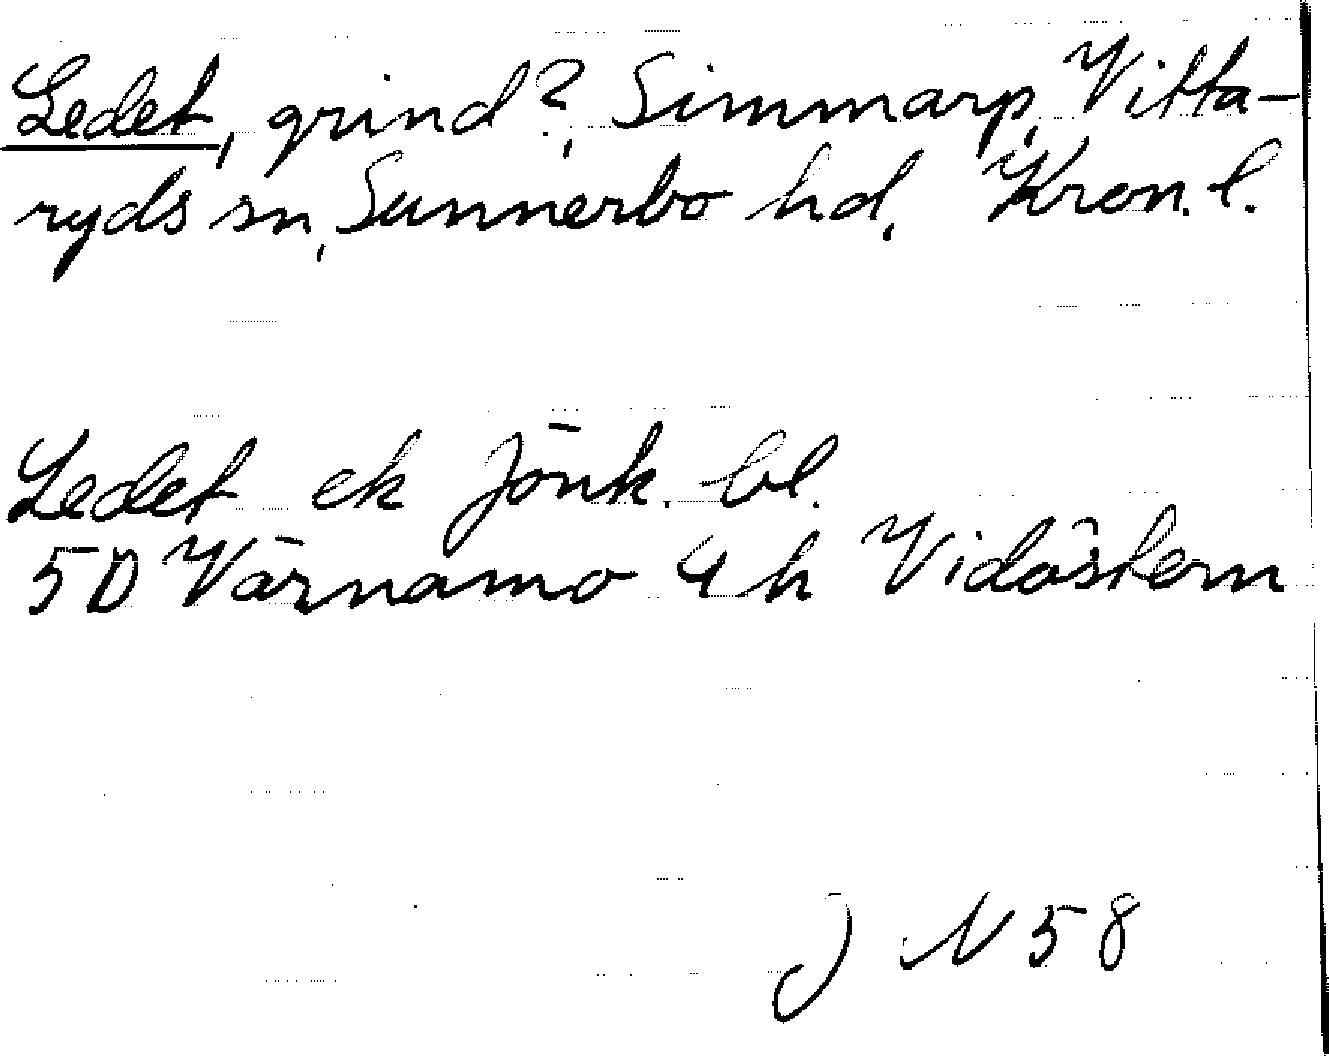 Ledet, grind?, Simmarp, Vitta-
ryds sn, Sunnerbo hd, Kron. l.
Ledet ek Jönk. bl.
5D Värnamo 4h Vidöstern
J N 58